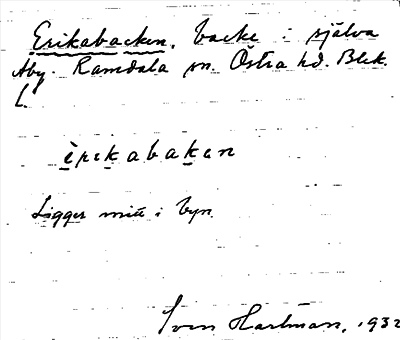 Erikabacken, backe i själva
Åby. Ramdala sn. Östra hd. Blek.
L.
èrikabakan
Ligger mitt i byn.
Sven Hartman, 1932